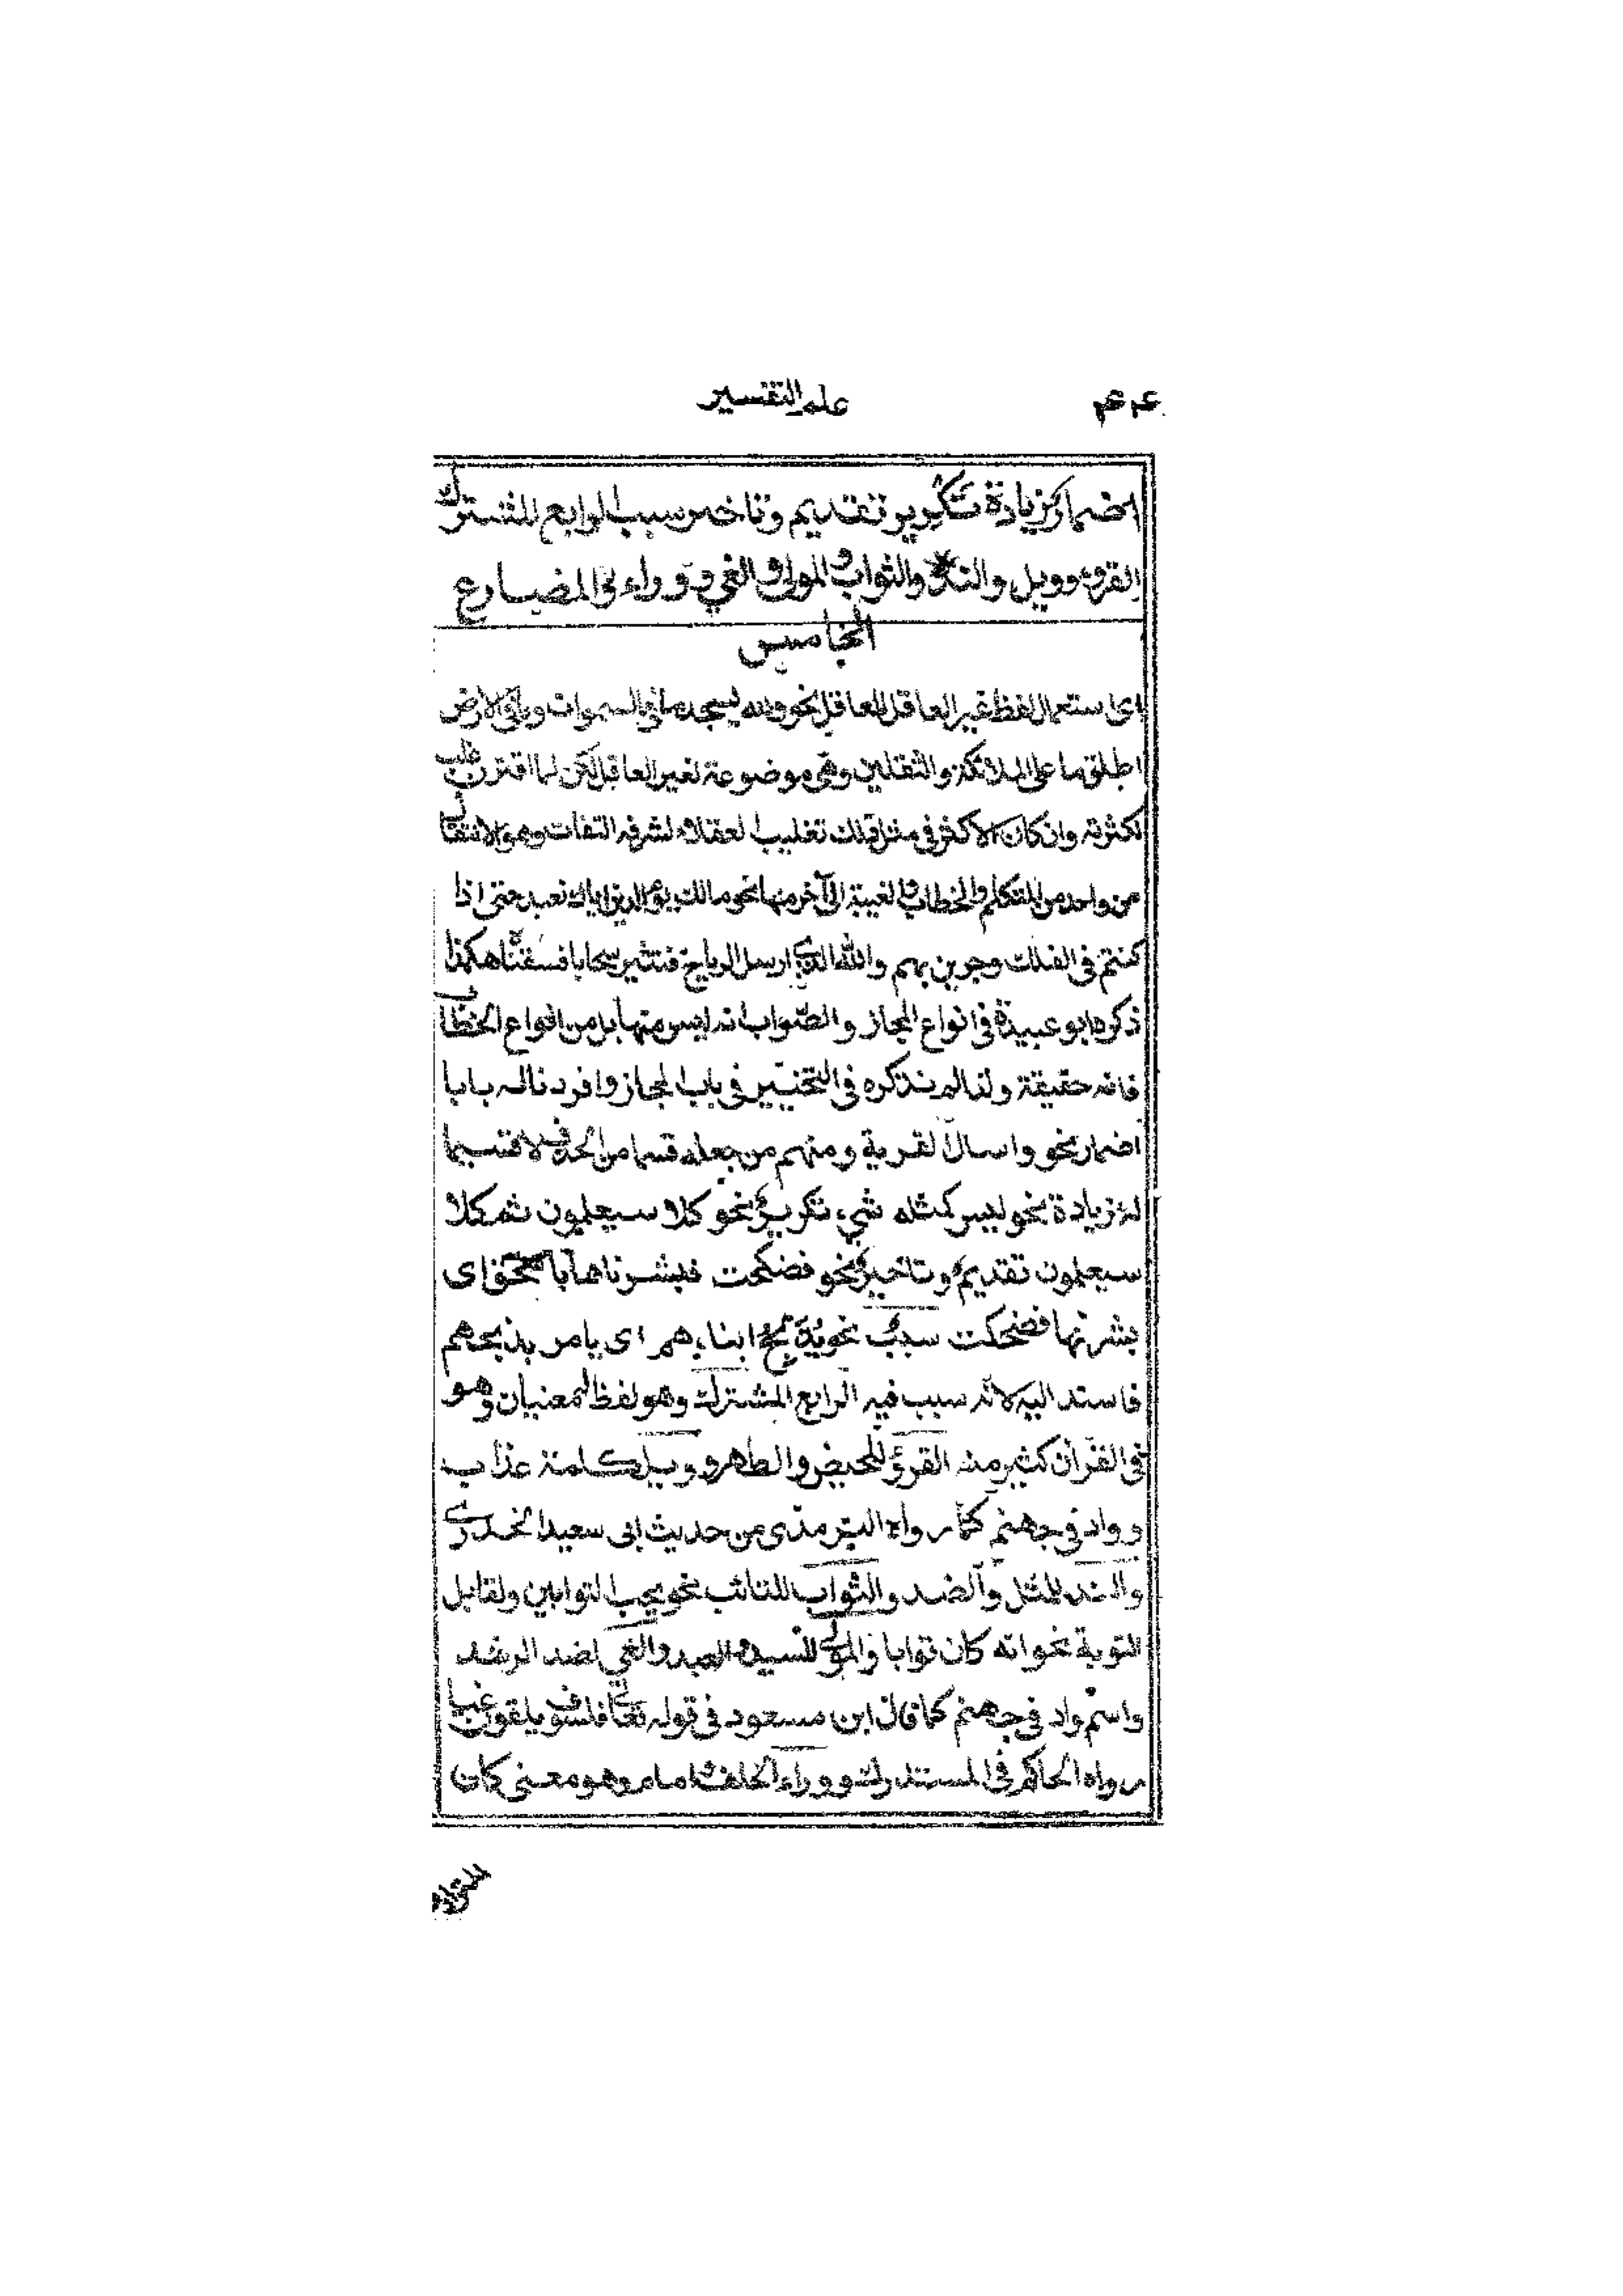 ٤٤ علم التفسير
اضمار زيادة تكرير تقديم وتاخير سبب الرابع المشترك
القرء وويل والند والتواب والمولى والغي ووراء والمضارع
الخامس
اى استعمال لفظ غير العاقل للعاقل نحو ولله يسجد ما في السموات وما في الارض
اطلق ما على الملائكة والثقلين وهي موضوعة لغير العاقل لكن لما اقترن غلب
لكثرته وان كان الاكثر في مثل ذلك تغليب العقلاء لشرفه التفات وهو الانتقال
من واحد من المتكلم والخطاب والغيبة الى آخر منها نحو مالك يوم الدين اياك نعبد حتى اذا
كنتم في الفلك وجرين بهم والله الذي ارسل الرياح فتثير سحابا فسقناه هكذا
ذكره ابو عبيدة في انواع المجاز والصواب انه ليس منها بل من انواع الخطاب
فانه حقيقة ولذا لم نذكره في التحبير في باب المجاز وافردنا له بابا
اضمار نحو واسال القرية ومنهم من جعله قسما من الحذف لا قسيما
له زيادة نحو ليس كمثله شيء تكرير نحو كلا سيعلمون ثم كلا
سيعلمون تقديم وتاخير نحو فضحكت فبشرناها باسحق اى
بشرنها فضحكت سبب نحو يذبح ابناءهم اى يامر بذبحهم
فاسند اليه لانه سبب فيه الرابع المشترك وهو لفظ له معنيان وهو
في القرآن كثير منه القرؤ للحيض والطهر وويل كلمة عذاب
وواد في جهنم كما رواه الترمذى من حديث ابى سعيد الخدري
والند للمثل والضد والتواب للتائب نحو يحب التوابين ولقابل
التوبة نحو انه كان توابا والمولى للسيد والعبد والغي لضد الرشد
واسم واد في جهنم كما قال ابن مسعود في قوله تعالى فسوف يلقون غيا
رواه الحاكم في المستدرك ووراء لخلف وامام وهو معنى كان